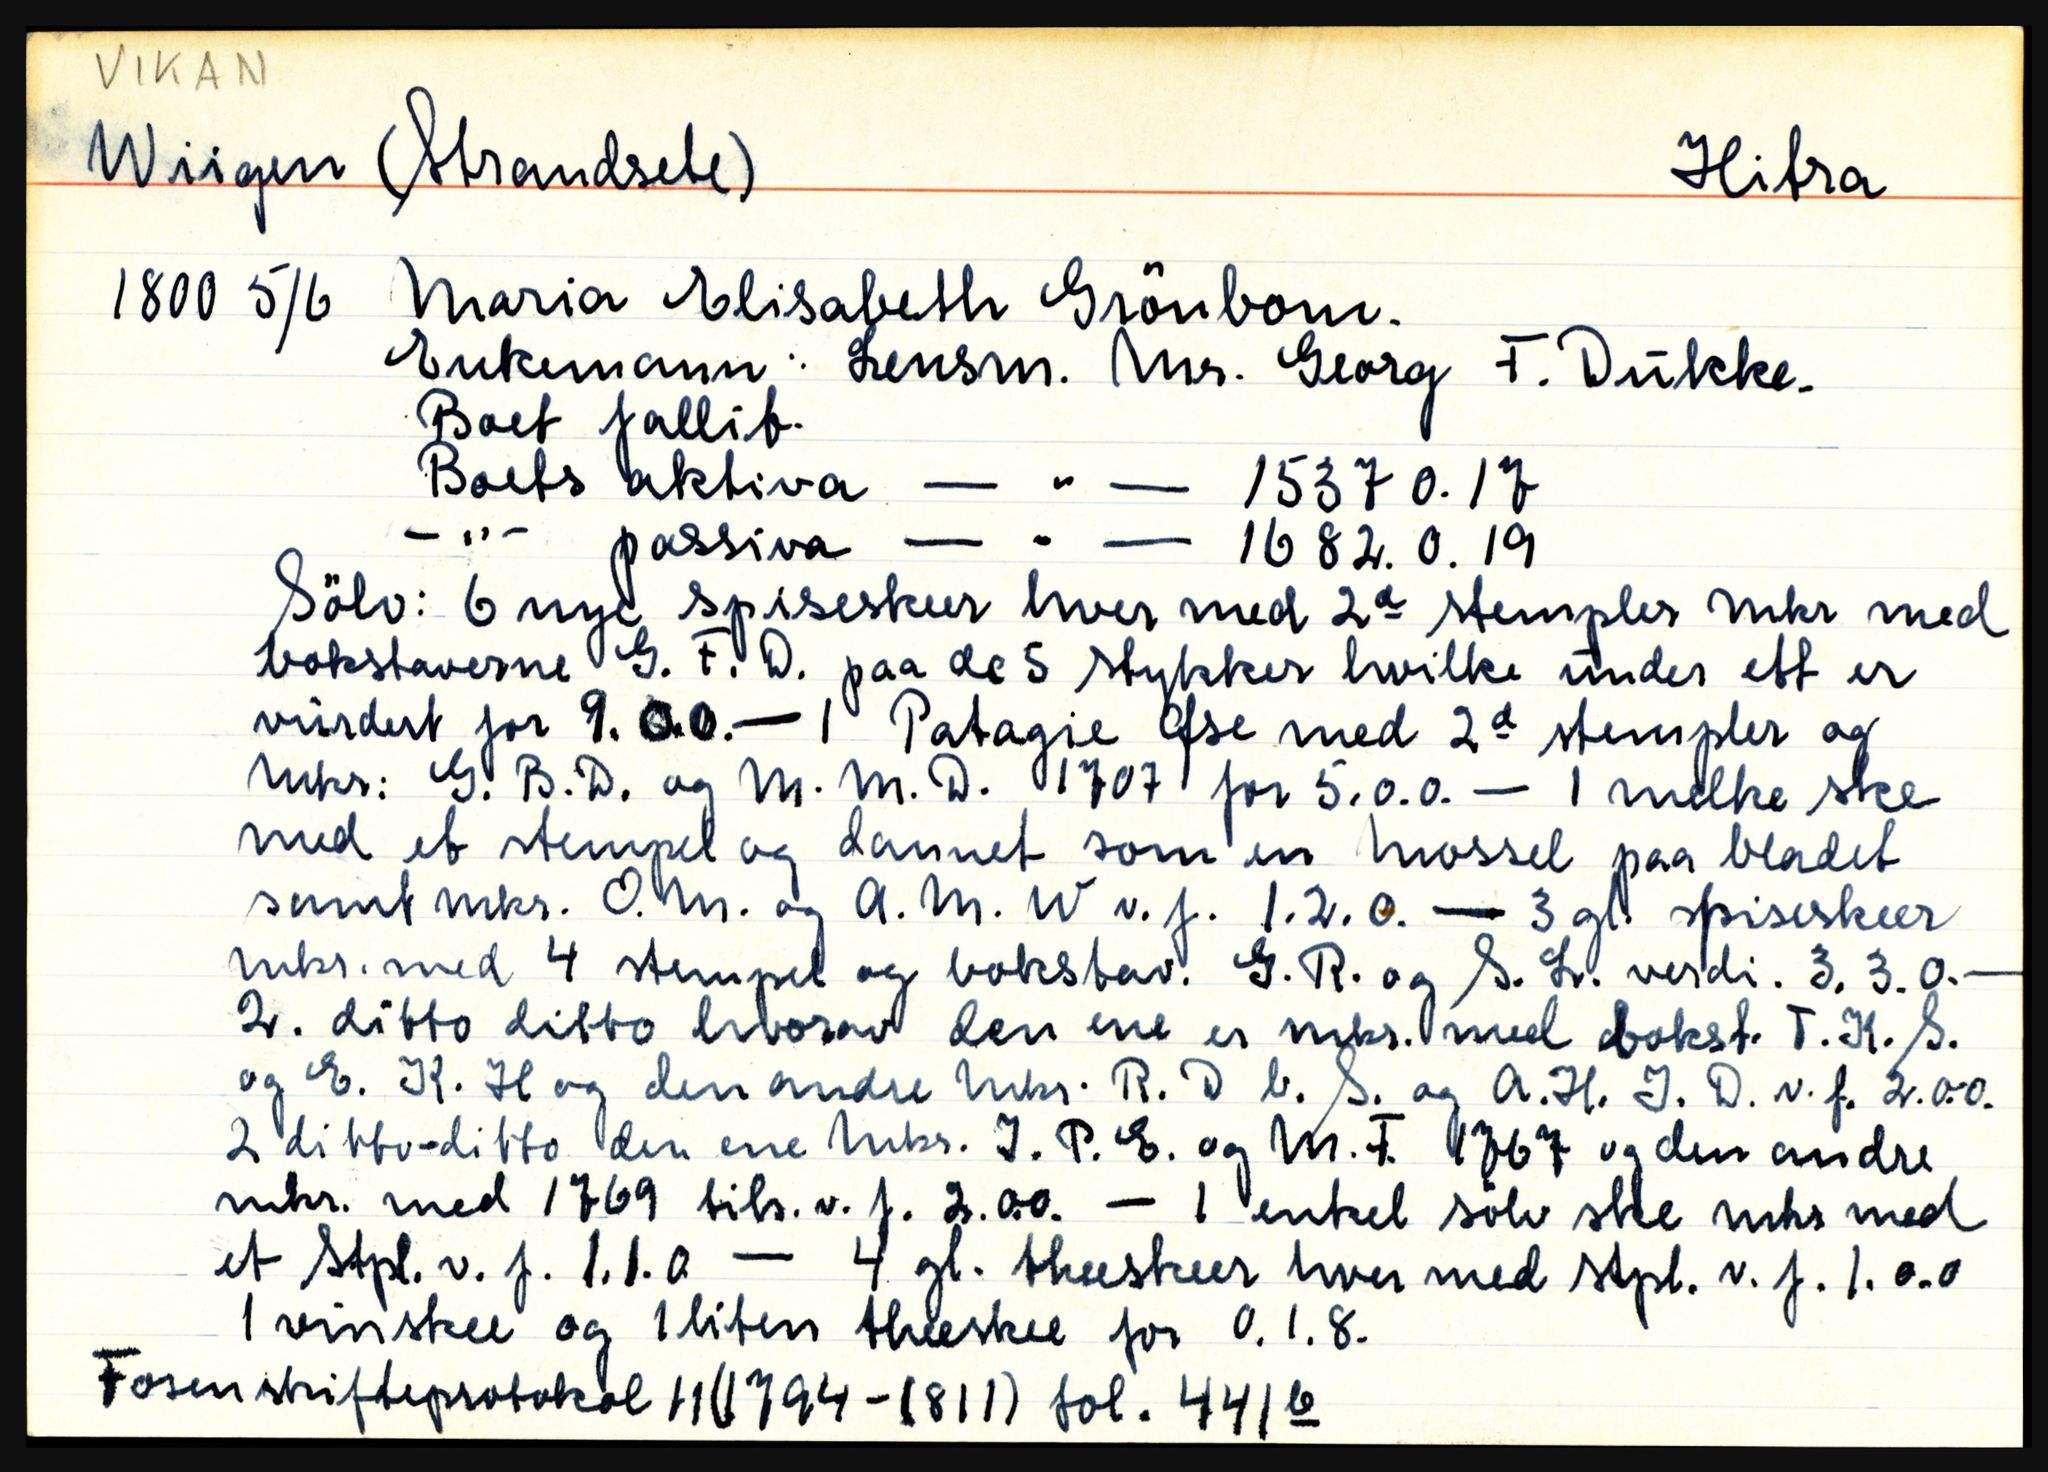 VIKAN
Wiigen (Strandsete) Hitra
1800 5/6 Maria Elisabeth Grönbom.
Enkemann: Lensm. Mr. Georg F. Dŭkke.
Boet fallit.
Boets aktiva — " — 1537 0. 17
- " - passiva — " — 1682. 0. 19
Sölv: 6 nye spiseskeer hver med 2de stempler mkr med
bokstaverne G. F. D. paa de 5 stykker hvilke ŭnder ett er
vŭrdert for 9. 0.0. — 1 Patagie med 2d stempler og
mkr: G. B. D. og M. M. D. 1707 for 5.0.0. — 1 melke ske
med et stempel og dannet som en mossel paa bladet
samt mkr. O. M. og A. M. W v. f. 1.2.0. — 3 gl. spiseskeer
mkr. med 4 stempel og bokstav. G. R. og S. L. verdi. 3. 3. 0. —
2. ditto ditto hvorav den ene er mkr. med bokst. T. K. S.
og E. K. H og den andre mkr. R. D b. S. og A. H. J. D. v. f. 2.0.0.
2 ditto-ditto den ene mkr. J. P. E. og M. F. 1767 og den andre
mkr. med 1769 tils. v. f. 2.0.0. — 1 enkel sölv ske mkr med
et Stpl. v. f. 1.1.0 — 4 gl. theeskeer hver med stpl. v. f. 1.0.0
1 vinskee og 1 liten theeskee for 0. 1. 8.
Fosen skifteprotokol 11 (1794-1811) fol. 441b